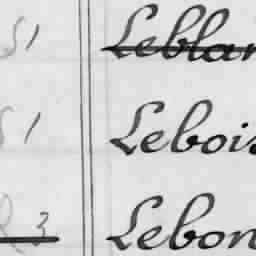 51 Leblan
51 Lebois
3 Lebon